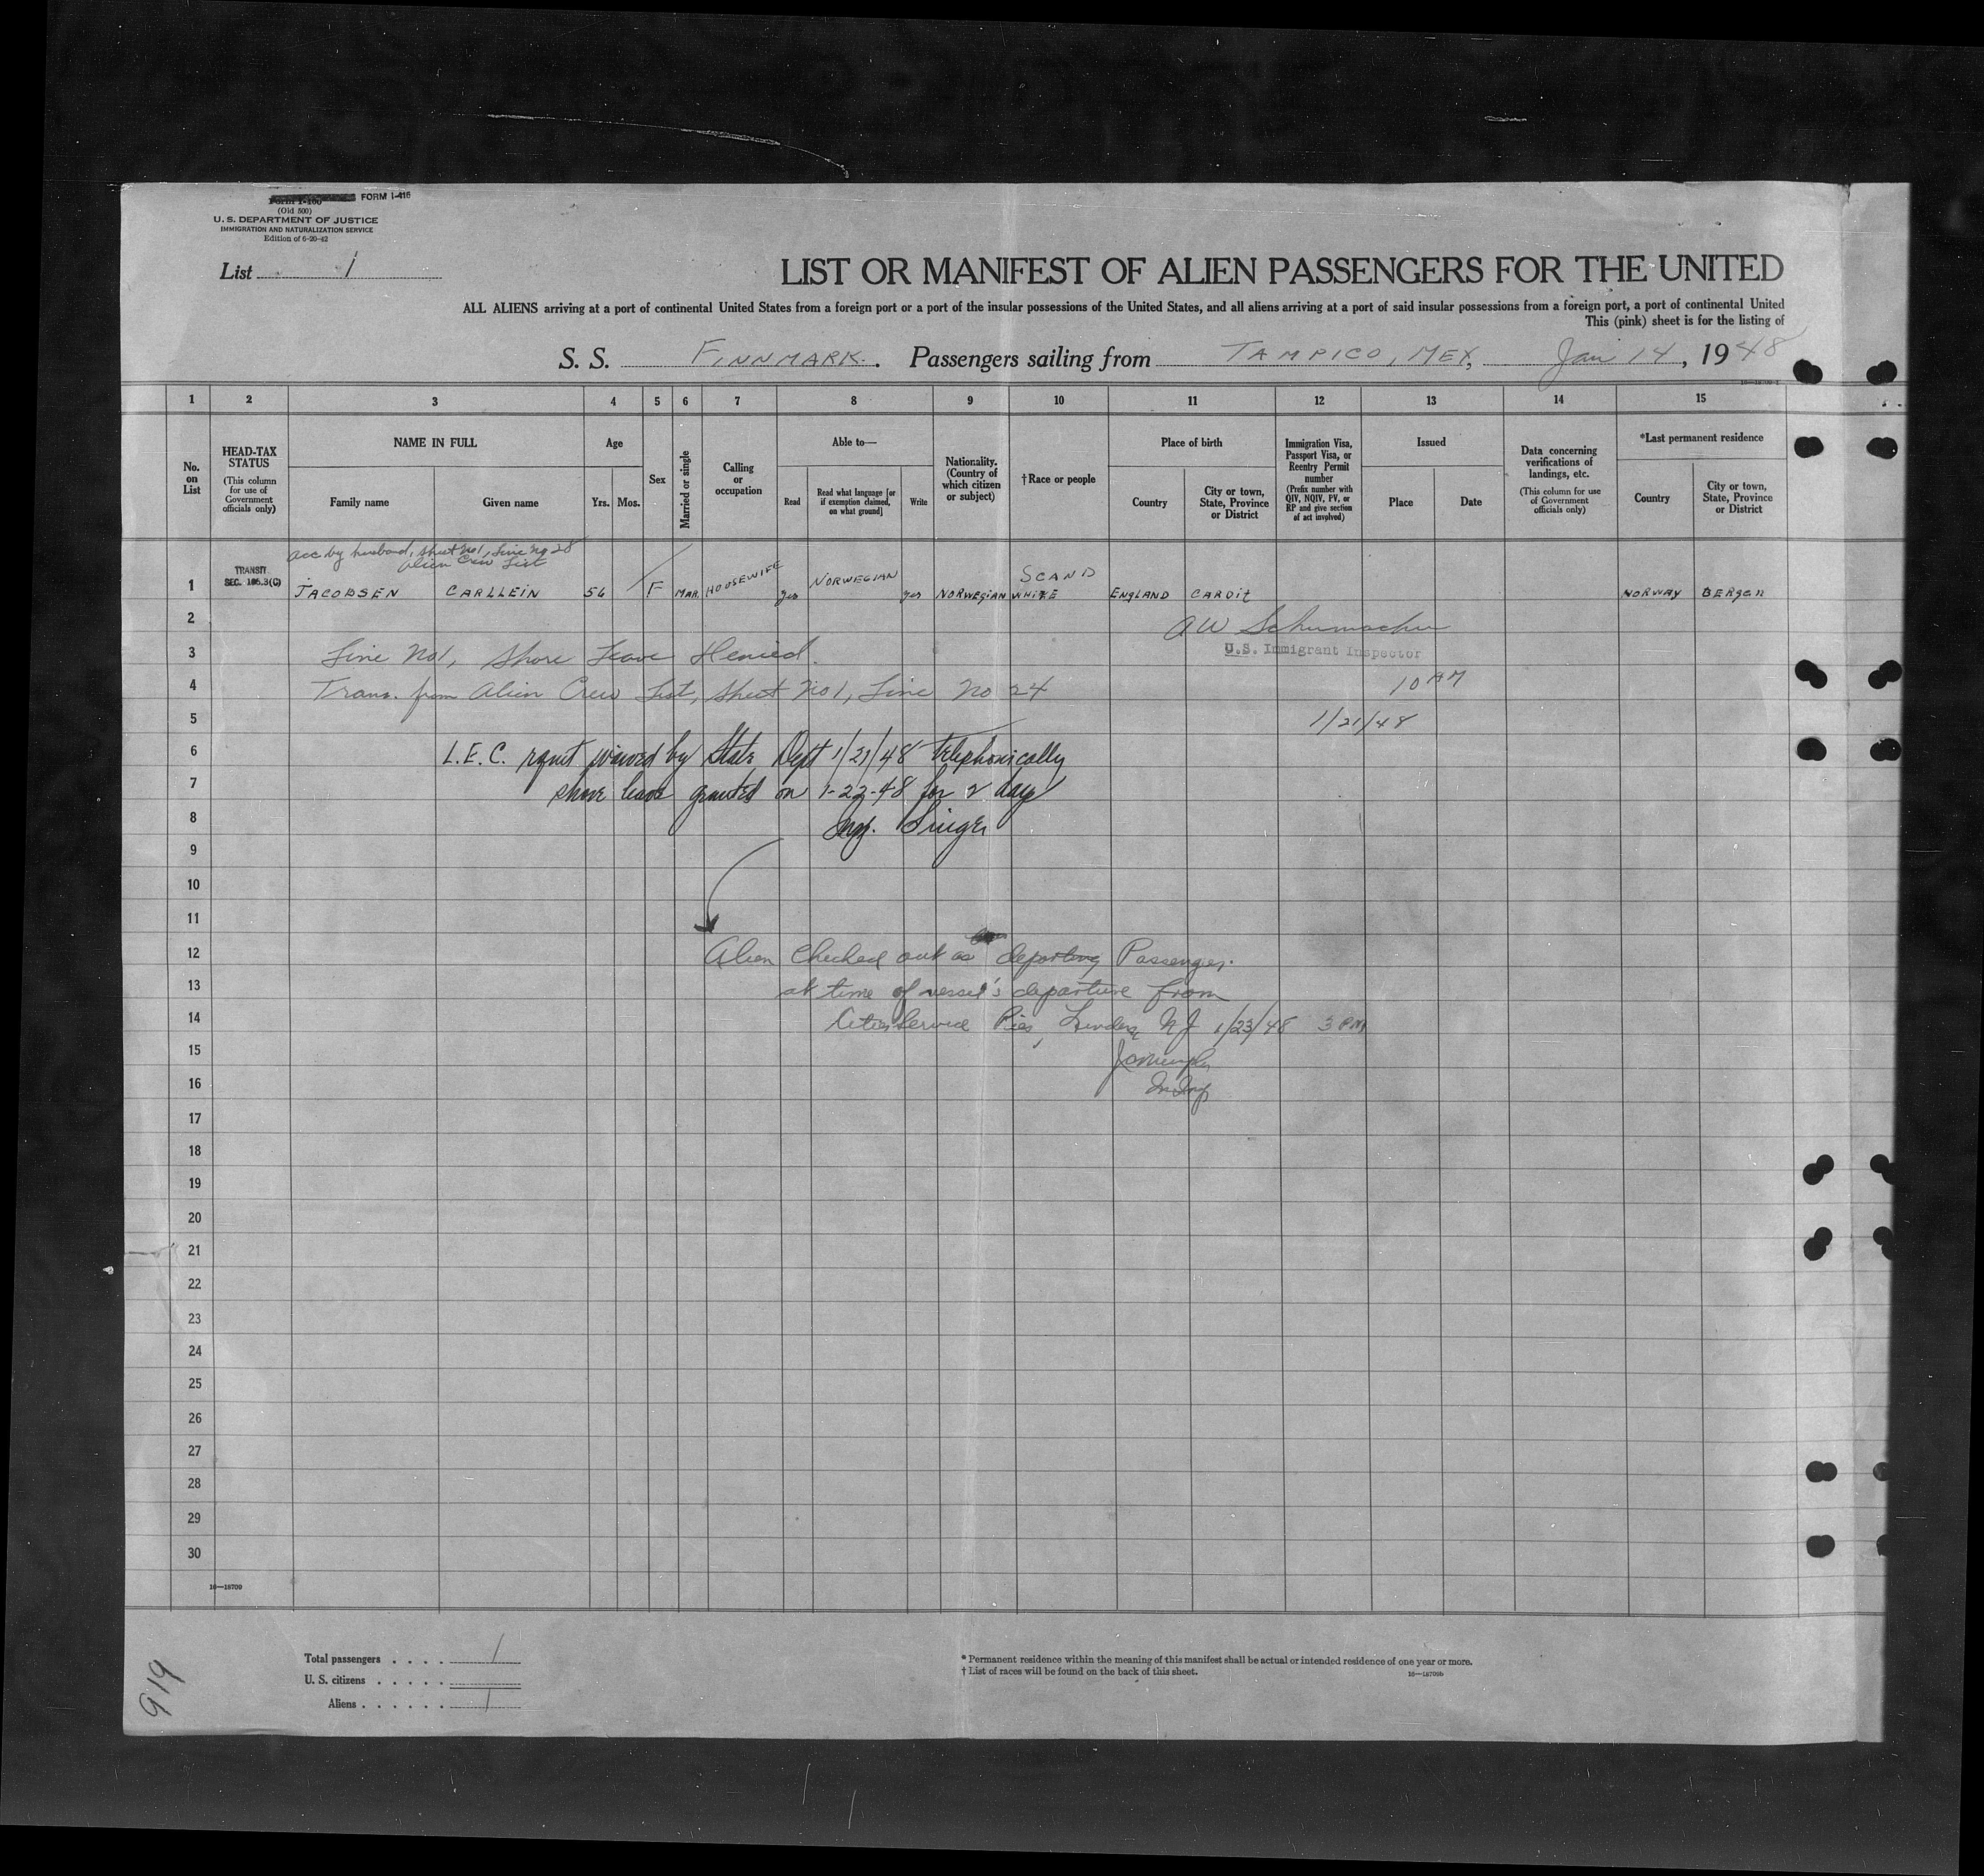 Form I-100 FORM I-416
(Old 500)
U. S. DEPARTMENT OF JUSTICE
IMMIGRATION AND NATURALIZATION SERVICE
Edition of 6-20-42
List 1
LIST OR MANIFEST OF ALIEN PASSENGERS FOR THE UNITED
ALL ALIENS arriving at a port of continental United States from a foreign port or a port of the insular possessions of the United States, and all aliens arriving at a port of said insular possessions from a foreign port, a port of continental United
This (pink) sheet is for the listing of
S. S. FINNMARK. Passengers sailing from TAMPICO, MEX, Jan 14, 1948
1 2 3 4 5 6 7 8 9 10 11 12 13 14 15
No. on List
HEAD-TAX STATUS
(This column for use of Government officials only)
NAME IN FULL
Family name Given name
Age
Yrs. Mos.
Sex
Married or single
Calling or occupation
Able to—
Read
Read what language [or if exemption claimed, on what ground]
Write
Nationality. (Country of which citizen or subject)
†Race or people
Place of birth
Country
City or town, State, Province or District
Immigration Visa, Passport Visa, or Reentry Permit number
(Prefix number with QIV, NQIV, PV, or RP and give section of act involved)
Issued
Place Date
Data concerning verifications of landings, etc.
(This column for use of Government officials only)
*Last permanent residence
Country
City or town, State, Province or District
acc by husband, sheet No 1, Line No 28
Alien Crew List
TRANSIT
SEC. 106.3(C)
1 JACOBSEN CARLLEIN 56 F MAR. HOUSEWIFE yes NORWEGIAN yes NORWEGIAN SCAND WHITE ENGLAND CARDIT NORWAY BERGEN
2 AW Schumacher
3 Line No 1, Shore Leave Denied. U.S. Immigrant Inspector
4 Trans. from Alien Crew List, Sheet No 1, Line No 24 10 AM
5 1/21/48
6 L.E.C. rqmt waived by State Dept 1/21/48 telephonically
7 shore leave granted on 1-22-48 for 2 day
8 Insp. Singer
9
10
11
12 Alien Checked out as departing Passenger.
13 at time of vessel's departure from
14 Cities Service Pier, Linden, NJ 1/23/48 3 PM
15
16
17
18
19
20
21
22
23
24
25
26
27
28
29
30
16—18709
Total passengers . . . . . 1
U. S. citizens . . . . . .
Aliens . . . . . . . 1
* Permanent residence within the meaning of this manifest shall be actual or intended residence of one year or more.
† List of races will be found on the back of this sheet. 16—18709b
919